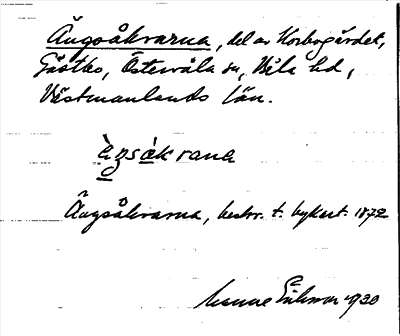 Ängsåkrarna, del av Korbogärdet,
Gästbo, Östervåla sn, Våla hd,
Västmanlands län.
àŋsàkrana
Ängsåkrarna, beskr. t. bykart. 1872
Manne Eriksson 1930